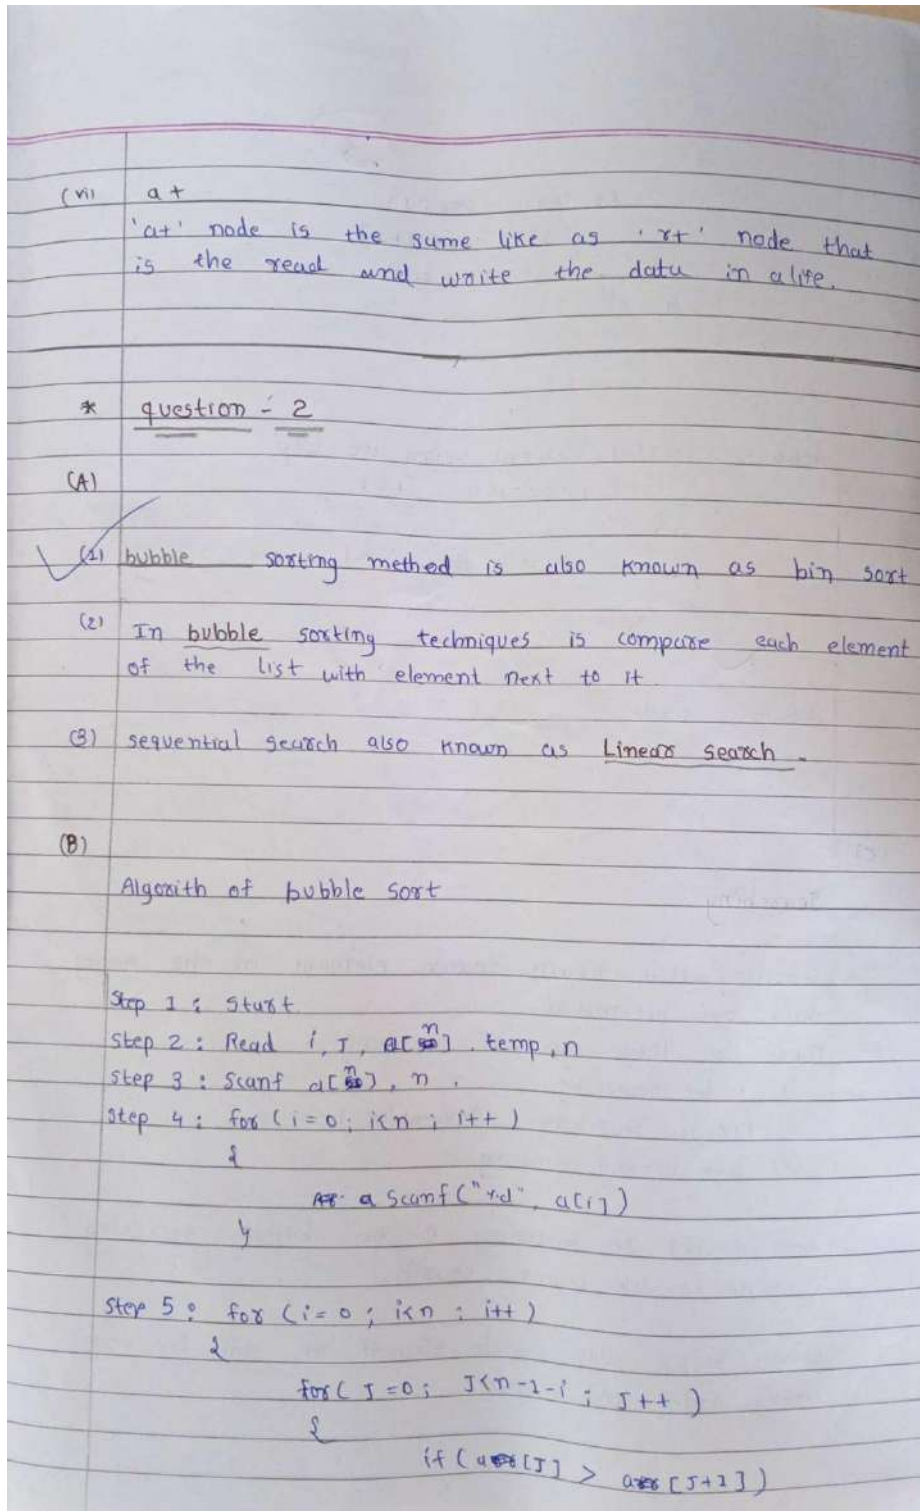 (vii) a+
'a+' node is the same like as 'r+' node that
is the read and write the data in a life.
* question - 2
(A)
(1) bubble sorting method is also known as bin sort
(2) In bubble sorting techniques is compare each element
of the list with element next to it
(3) sequential search also known as Linear search.
(B)
Algorith of bubble sort
Step 1 : Start
Step 2 : Read i, J, a[n], temp, n
Step 3 : Scanf a[n], n.
Step 4 : for (i=0; i<n; i++)
{
a scanf("%d", a[i])
}
Step 5 : for (i=0; i<n; i++)
{
for( J=0; J<n-1-i; J++)
{
if (a[J] > a[J+1])